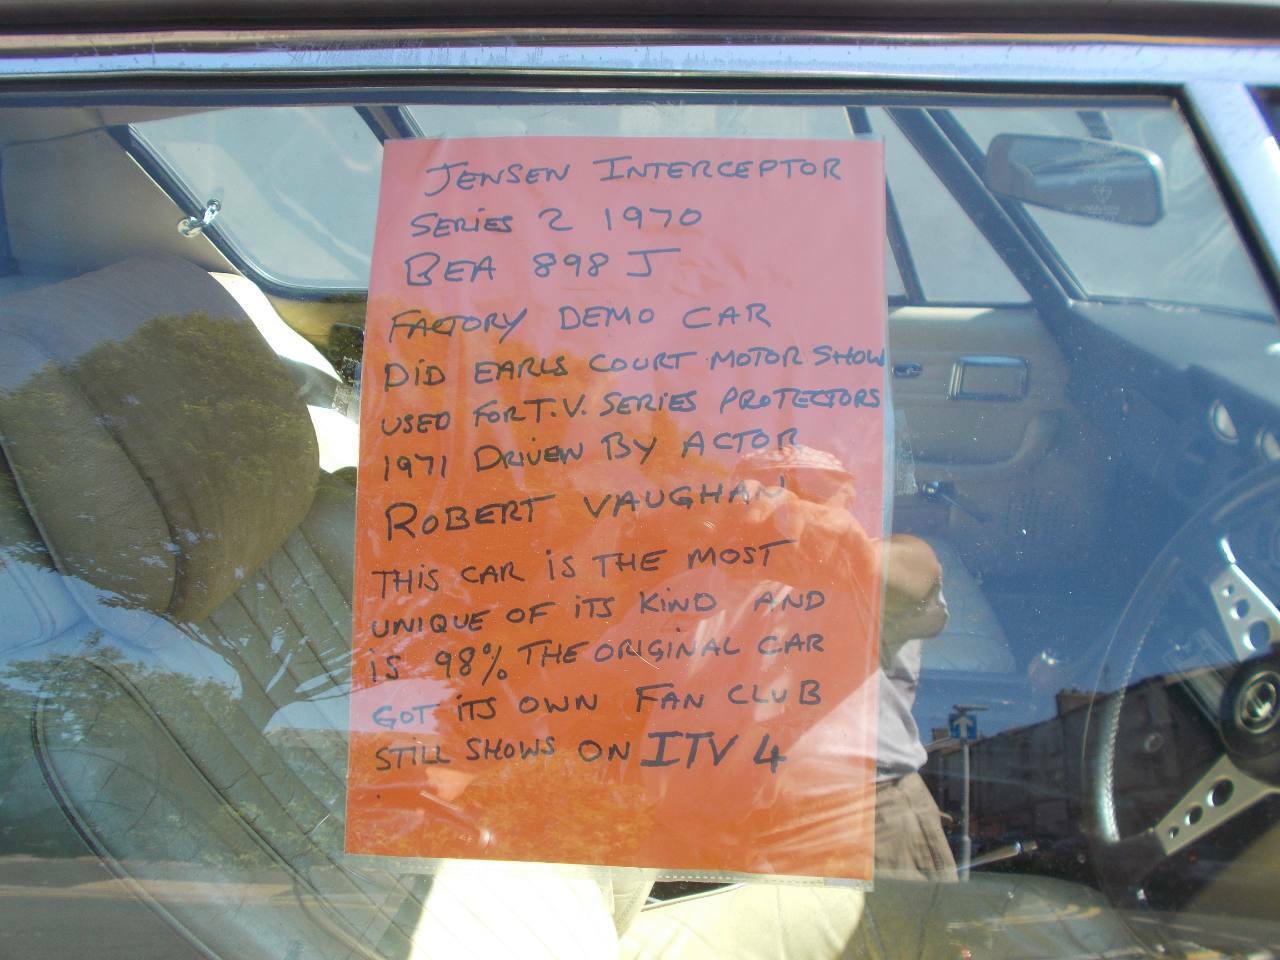 JENSEN INTERCEPTOR
SERIES 2 1970
BEA 898 J
FACTORY DEMO CAR
DID EARLS COURT MOTOR SHOW
USED FOR T.V. SERIES PROTECTORS
1971 DRIVEN BY ACTOR
ROBERT VAUGHAN
THIS CAR IS THE MOST
UNIQUE OF ITS KIND AND
IS 98% THE ORIGINAL CAR
GOT ITS OWN FAN CLUB
STILL SHOWS ON ITV 4